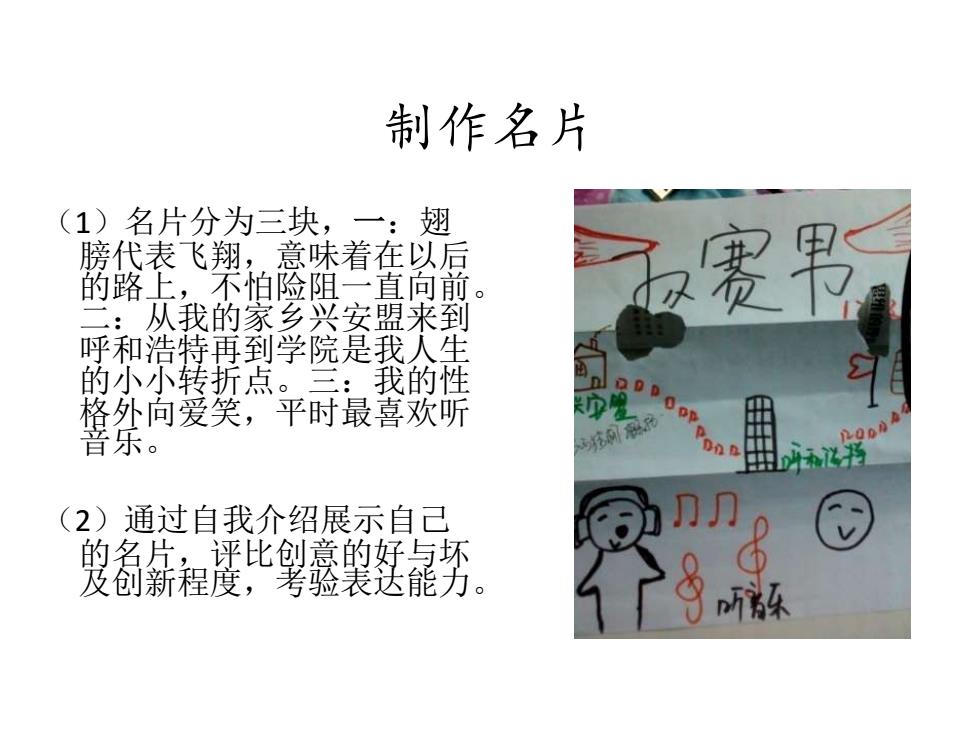 制作名片
（1）名片分为三块，一：翅
膀代表飞翔，意味着在以后
的路上，不怕险阻一直向前。
二：从我的家乡兴安盟来到
呼和浩特再到学院是我人生
的小小转折点。三：我的性
格外向爱笑，平时最喜欢听
音乐。
（2）通过自我介绍展示自己
的名片，评比创意的好与坏
及创新程度，考验表达能力。
赛男
兴安盟
呼和浩特
听音乐